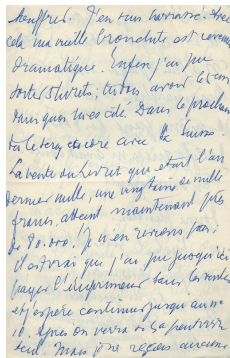 souffres. J'en suis harrassé. Avec
cela ma vieille bronchite est revenue
dramatique. Enfin j'ai pu
sortir
dans quoi tu es cité. Dans le prochain
tu le seras encore avec
La vente du livret qui était l'an
dernier mille, une vingtaine de mille
francs, atteint maintenant près
de 80.000! Je n'en reviens pas;
il est vrai que j'ai pu jusqu'ici
payer l'imprimeur dans les
et j'espère continuer jusqu'au n°
10. Après on verra si ça peut vivre
seul. Mais je ne reçois aucune